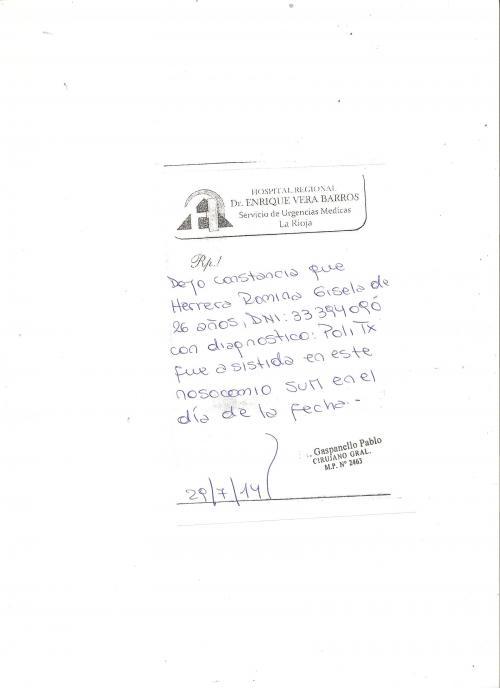 HOSPITAL REGIONAL
Dr. ENRIQUE VERA BARROS
Servicio de Urgencias Medicas
La Rioja
Rp.!
Dejo constancia que
Herrera Romina Gisela de
26 años, DNI: 33394090
con diagnostico: Poli Tx
fue asistida en este
nosocomio SUM en el
día de la fecha.-
Gaspanello Pablo
CIRUJANO GRAL.
M.P. Nº 2463
29/7/14